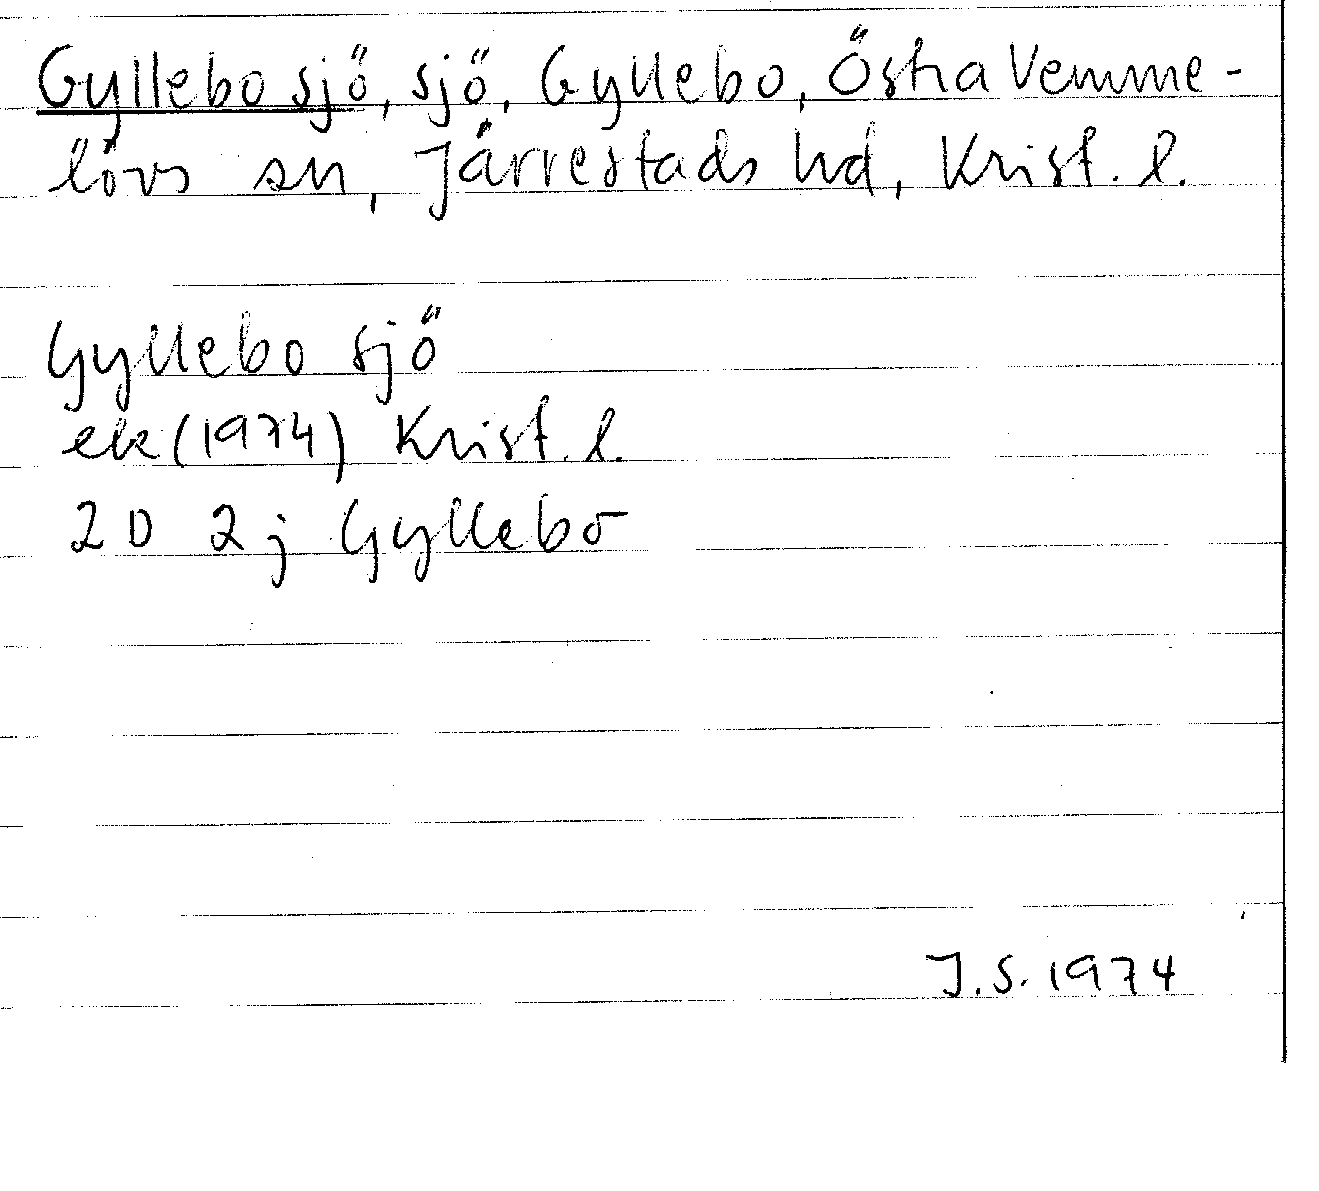 Gyllebo sjö, sjö, Gyllebo, Östra Vemme-
lövs sn, Järrestads hd, Krist. l.
Gyllebo sjö
ek (1974) Krist. l.
2D 2j Gyllebo
J.S. 1974